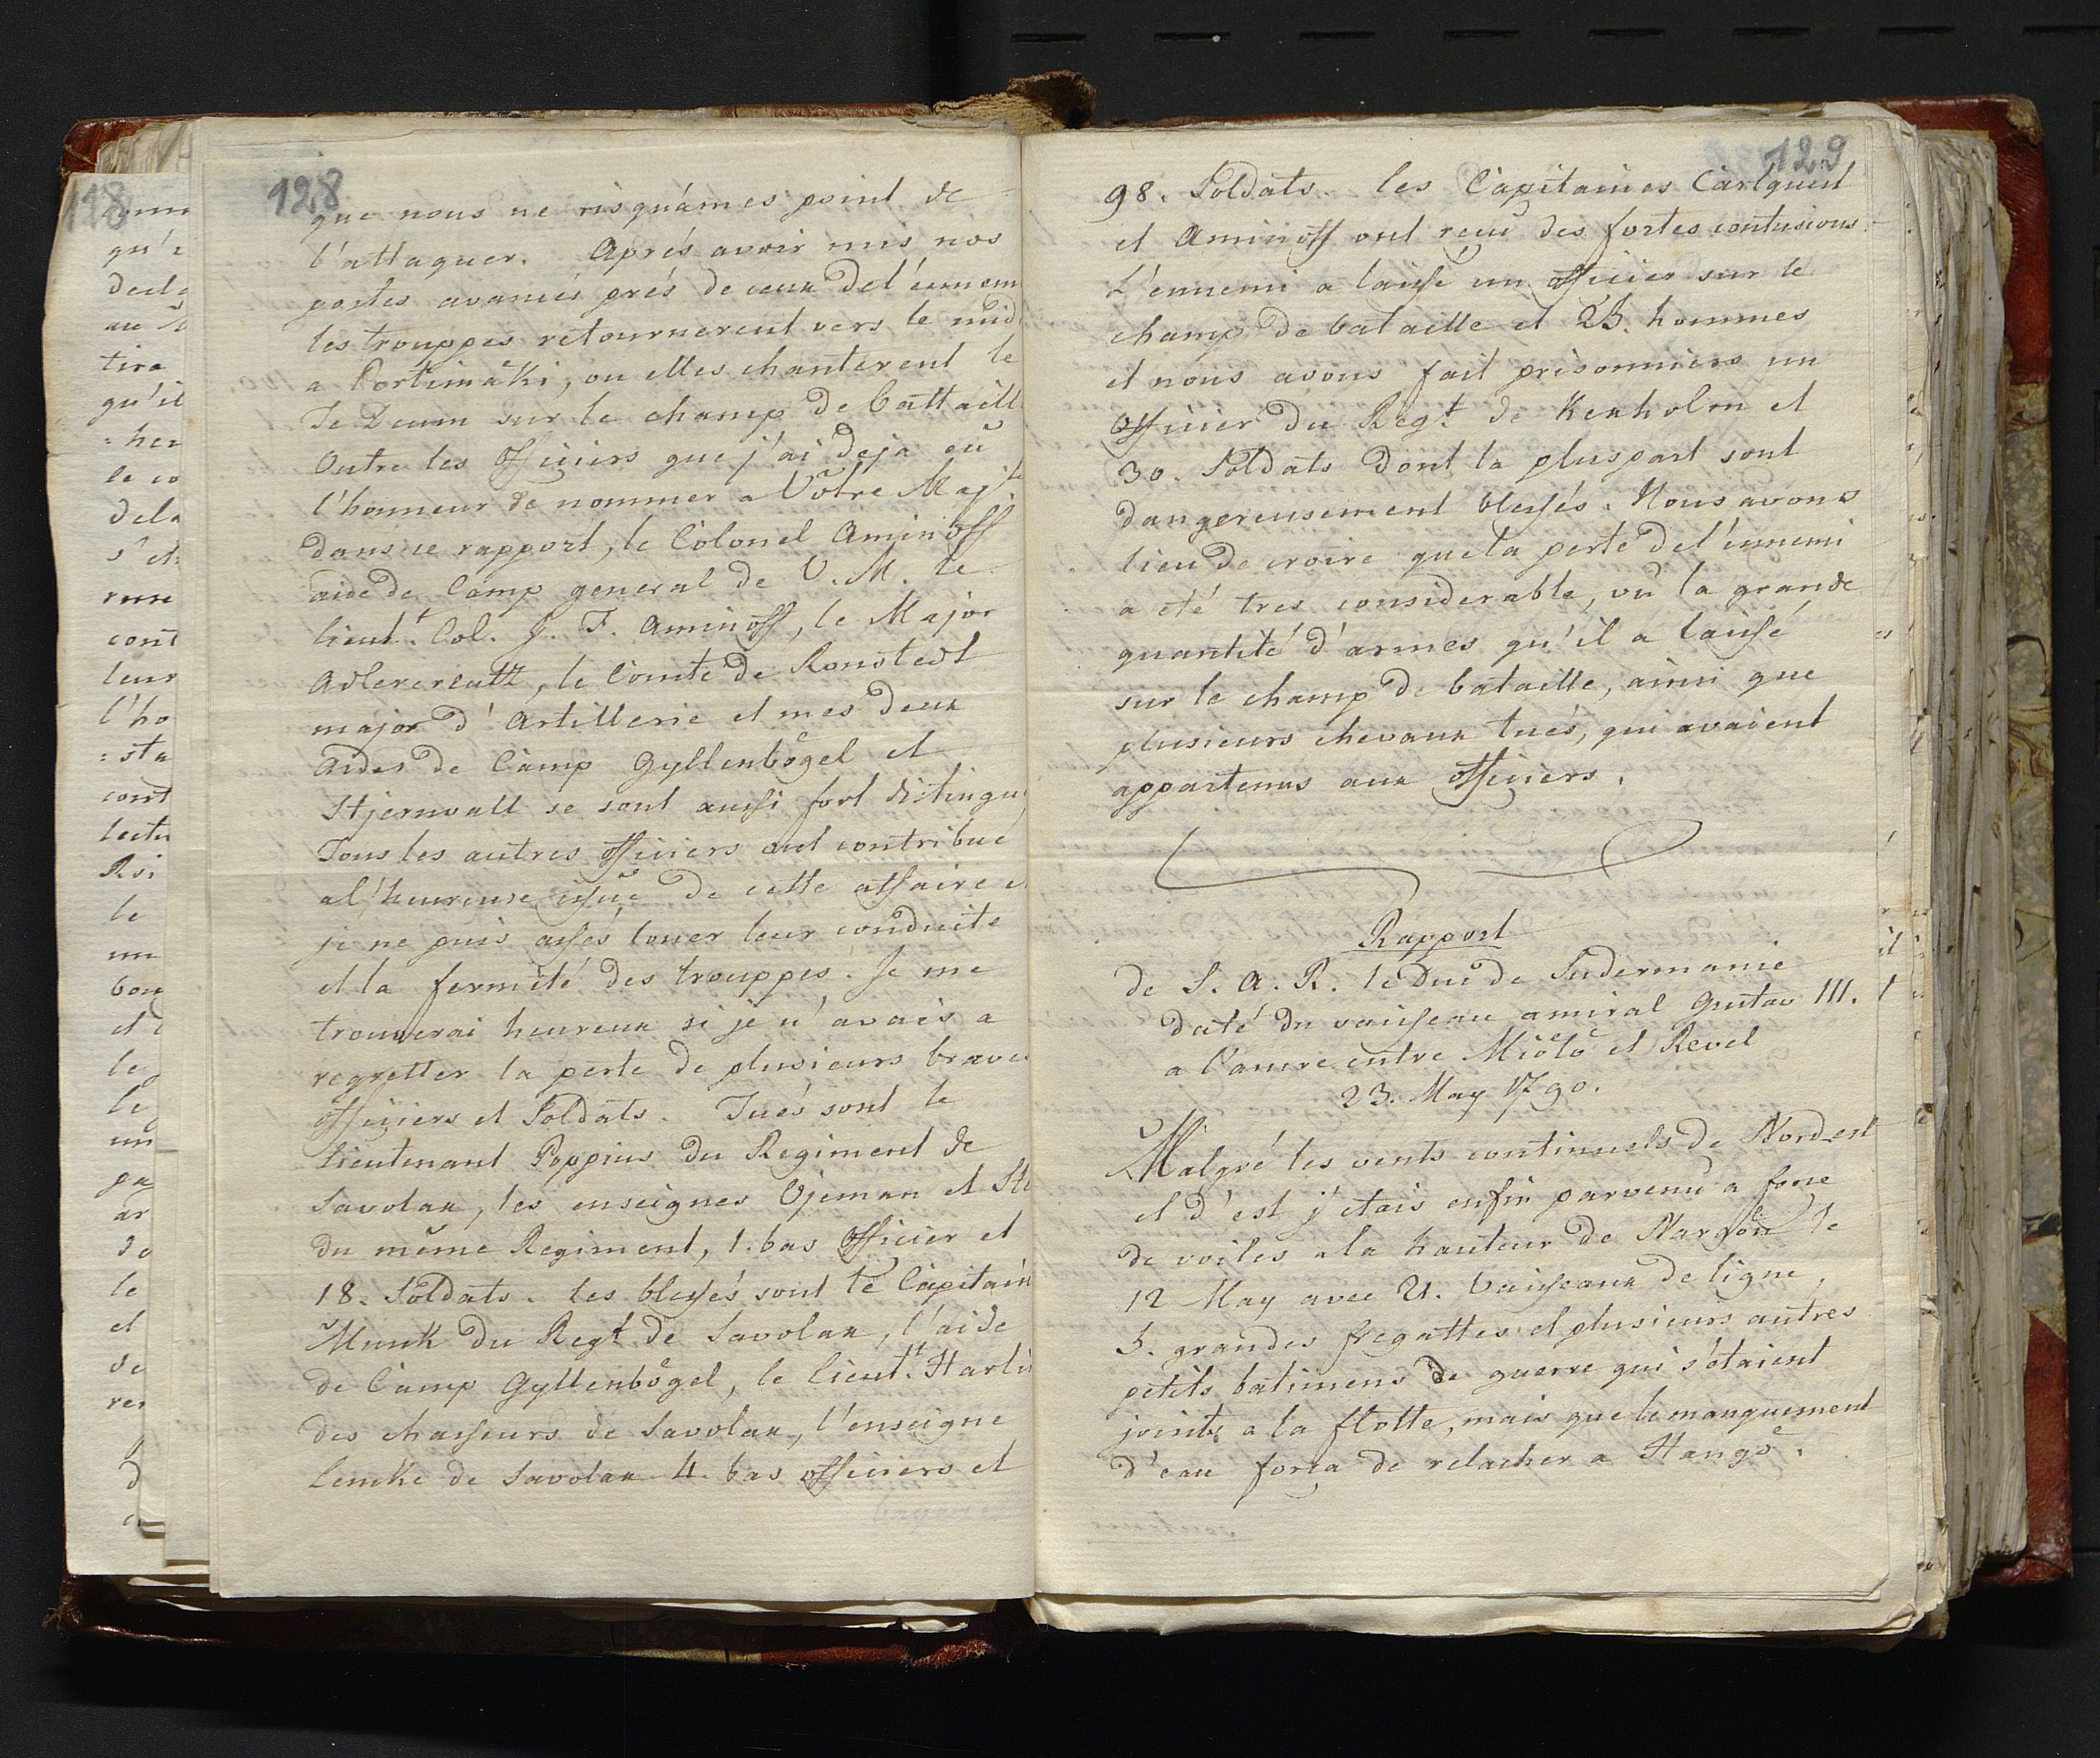 128
que nous ne risquámes point de
l'attaquer. Aprés avoir mis nos
postes avancés prés de ceux del'ennem
les trouppes retournerent vers le mid
a Portimäki, ou elles chanterent le
Te Deum sur le champ de battaill
Outre les Officiers que j'ai deja eû
l'honneur de nommer a Vôtre Maj:té
dans ce rapport, le Colonel Aminoff
aide de Camp general de V. M. le
lieut.t Col. J. F. Aminoff, le Major
Adlercreutz, le Comte de Kronstedt
major d'Artillerie et mes deux
Aides de Camp Gyllenbögel et
Stjernvall se sont aussi fort distingu
Tous les autres officiers ont contribué
al'heureuse issuë de cette affaire e
je ne puis assés louer leur conduite
et la fermété des trouppes. Je me
trouverai heureux si je n'avais a
regretter la perte de plusieurs brave
officiers et Soldats. Tués sont le
Lieutenant Poppius du Regiment de
Savolax, les enseignes Öjeman et Ste
du même Regiment, 1. bas Officier et
18. Soldats. les blessés sont le Capitain
Munk du Regt de Savolax, l'aide
de Camp Gyllenbögel, le Lieut.t Harli
des chasseurs de Savolax, l'enseigne
Lemke de Savolax 4. bas officiers et
129
98. Soldats. les Capitaines Carlqueist
et Aminoff ont reçu des fortes contusions.
L'ennemi a laissé un officier sur le
champ de bataille et 25. hommes
et nous avons fait prisonniers un
Officier du Reg.t de Kexholm et
30. Soldats dont la pluspart sont
dangereusement blessés. Nous avons
lieu de croire que la perte del'ennemi
a été tres considerable, vû la grande
quantité d'armes qu'il a laissé
sur le champ de bataille, ainsi que
plusieurs chevaux tués, qui avaient
appartenus aux officiers.
Rapport
de S. A. R. le Duc de Sudermanie
daté du vaisseau amiral Gustav III.
a l'ancre entre Miölö et Revel
23. May 1790.
Malgré les vents continuels de Nord-est
et d'est j'étais enfin parvenu a force
de voiles ala hauteur de Nargön le
12 May avec 21. Vaisseaux de ligne,
5. grandes fregattes et plusieurs autres
petits batimens de guerre qui s'étaient
joints a la flotte, mais que le manquement
d'eau força de relacher a Hangö.